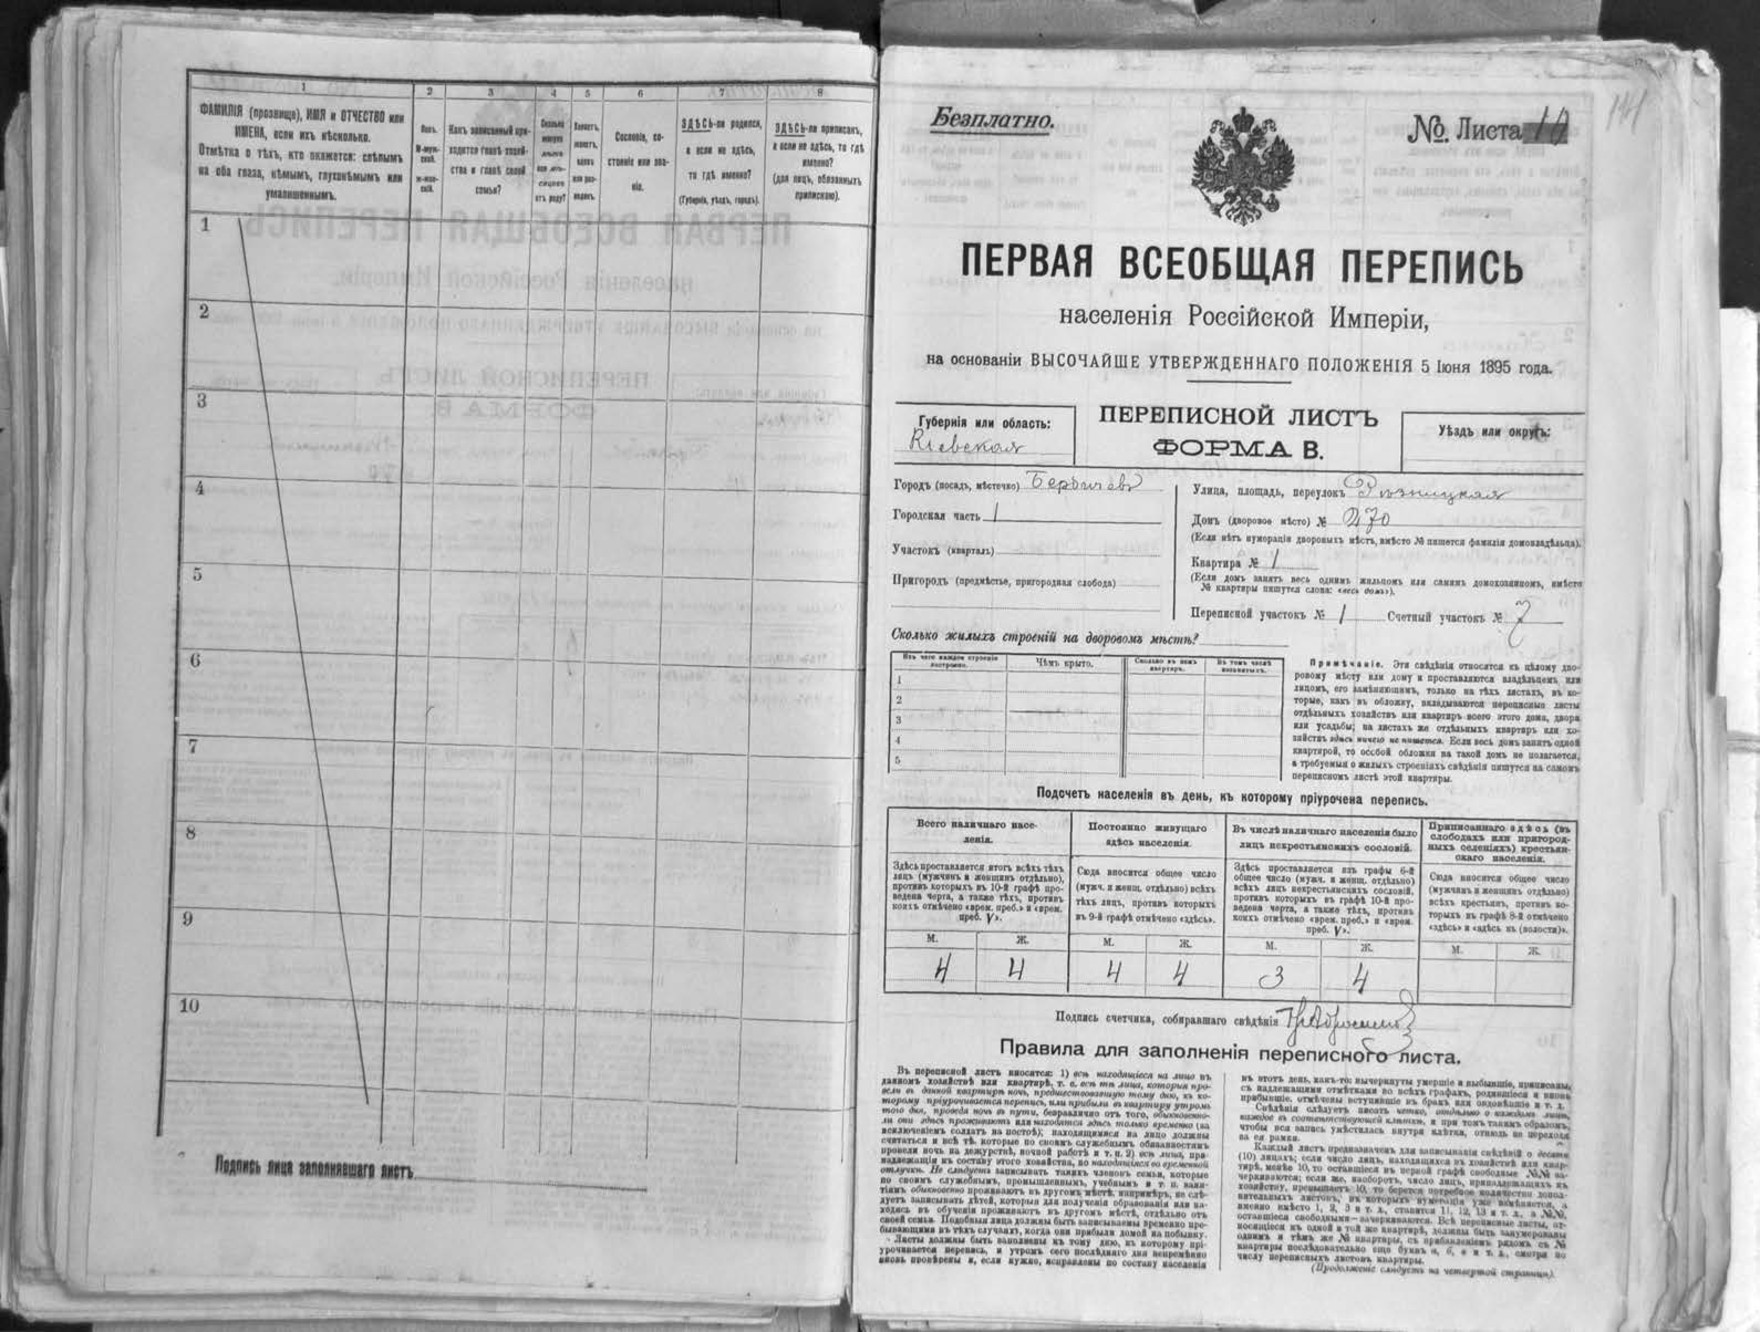 1
2
3
4
5
6
7
8
ФАМИЛІЯ (прозвище), ИМЯ и ОТЧЕСТВО или
ИМЕНА, если ихъ нѣсколько.
Отмѣтка о тѣхъ, кто окажется: слѣпымъ
на оба глаза, нѣмымъ, глухонѣмымъ или
умалишеннымъ.
Полъ.
М-муж-
ской.
Ж-жен-
скій.
Какъ записанный при-
ходится главѣ хозяй-
ства и главѣ своей
семьи?
Сколько
минуло
лѣтъ
или мѣ-
сяцевъ
отъ роду?
Холостъ,
женатъ,
вдовъ
или раз-
веденъ.
Сословіе, со-
стояніе или зва-
ніе.
ЗДѢСЬ-ли родился,
а если не здѣсь,
то гдѣ именно?
(Губернія, уѣздъ, городъ).
ЗДѢСЬ-ли приписанъ,
а если не здѣсь, то гдѣ
именно?
(для лицъ, обязанныхъ
припискою).
1
2
3
4
5
6
7
8
9
10
Подпись лица заполнявшаго листъ
Безплатно.
№ Листа
141
ПЕРВАЯ ВСЕОБЩАЯ ПЕРЕПИСЬ
населенія Россійской Имперіи,
на основаніи ВЫСОЧАЙШЕ УТВЕРЖДЕННАГО ПОЛОЖЕНІЯ 5 Іюня 1895 года.
Губернія или область:
Кіевская
ПЕРЕПИСНОЙ ЛИСТЪ
ФОРМА В.
Уѣздъ или округъ:
Городъ (посадъ, мѣстечко) Бердичевъ
Городская часть 1
Участокъ (кварталъ)
Пригородъ (предмѣстье, пригородная слобода)
Улица, площадь, переулокъ Рѣзницкая
Домъ (дворовое мѣсто) № 270
(Если нѣтъ нумораціи дворовыхъ мѣстъ, вмѣсто № пишется фамилія домовладѣльца).
Квартира № 1
(Если домъ занятъ весь однимъ жильцомъ или самимъ домохозяиномъ, вмѣсто
№ квартиры пишутся слова: «весь домъ»).
Переписной участокъ № 1 Счетный участокъ № 7
Сколько жилыхъ строеній на дворовомъ мѣстѣ?
Изъ чего каждое строеніе
построено.
Чѣмъ крыто.
Сколько въ немъ
квартиръ.
Въ томъ числѣ
1
2
3
4
5
Примѣчаніе. Эти свѣдѣнія относятся къ цѣлому дво-
ровому мѣсту или дому и проставляются владѣльцемъ или
лицомъ, его замѣняющимъ, только на тѣхъ листахъ, въ ко-
торые, какъ въ обложку, вкладываются переписные листы
отдѣльныхъ хозяйствъ или квартиръ всего этого дома, двора
или усадьбы; на листахъ же отдѣльныхъ квартиръ или хо-
зяйствъ здѣсь ничего не пишется. Если весь домъ занятъ одной
квартирой, то особой обложки на такой домъ не полагается,
а требуемыя о жилыхъ строеніяхъ свѣдѣнія пишутся на самомъ
переписномъ листѣ этой квартиры.
Подсчетъ населенія въ день, къ которому пріурочена перепись.
Всего наличнаго насе-
ленія.
Здѣсь проставляется итогъ всѣхъ тѣхъ
лицъ (мужчинъ и женщинъ отдѣльно),
противъ которыхъ въ 10-й графѣ про-
ведена черта, а также тѣхъ, противъ
коихъ отмѣчено «врем. преб.» и «врем.
преб. V».
Постоянно живущаго
здѣсь населенія.
Сюда вносится общее число
(мужч. и женщ. отдѣльно) всѣхъ
тѣхъ лицъ, противъ которыхъ
въ 9-й графѣ отмѣчено «здѣсь».
Въ числѣ наличнаго населенія было
лицъ некрестьянскихъ сословій.
Здѣсь проставляется изъ графы 6-й
общее число (мужч. и женщ. отдѣльно)
всѣхъ лицъ некрестьянскихъ сословій,
противъ которыхъ въ графѣ 10-й про-
ведена черта, а также тѣхъ, противъ
коихъ отмѣчено «врем. преб.» и «врем.
преб. V».
Приписаннаго здѣсь (въ
слободахъ или пригород-
ныхъ селеніяхъ) крестьян-
скаго населенія.
Сюда вносится общее число
(мужчинъ и женщинъ отдѣльно)
всѣхъ крестьянъ, противъ ко-
торыхъ въ графѣ 8-й отмѣчено
«здѣсь» и «здѣсь въ (волости)».
М. Ж. М. Ж. М. Ж. М. Ж.
4 4 4 4 3 4
Подпись счетчика, собиравшаго свѣдѣнія
Правила для заполненія переписного листа.
Въ переписной листъ вносятся: 1) всѣ находящіеся на лицо въ
данномъ хозяйствѣ или квартирѣ, т. е. всѣ тѣ лица, которыя про-
вели въ данной квартирѣ ночь, предшествовавшую тому дню, къ ко-
торому пріурочивается перепись, или прибыли въ квартиру утромъ
того дня, проведя ночь въ пути, безразлично отъ того, обыкновенно-
ли они здѣсь проживаютъ или находятся здѣсь только временно (за
исключеніемъ солдатъ на постоѣ); находящимися на лицо должны
считаться и всѣ тѣ, которые по своимъ служебнымъ обязанностямъ
провели ночь на дежурствѣ, ночной работѣ и т. п. 2) всѣ лица, при-
надлежащія къ составу этого хозяйства, но находящіеся во временной
отлучкѣ. Не слѣдуетъ записывать такихъ членовъ семьи, которые
по своимъ служебнымъ, промышленнымъ, учебнымъ и т. п. заня-
тіямъ обыкновенно проживаютъ въ другомъ мѣстѣ, напримѣръ, не слѣ-
дуетъ записывать дѣтей, которыя для полученія образованія или на-
ходясь въ обученіи проживаютъ въ другомъ мѣстѣ, отдѣльно отъ
своей семьи. Подобныя лица должны быть записываемы временно пре-
бывающими въ тѣхъ случаяхъ, когда они прибыли домой на побывку.
Листы должны быть заполнены къ тому дню, къ которому прі-
урочивается перепись, и утромъ сего послѣдняго дня непремѣнно
вновь провѣрены и, если нужно, исправлены по составу населенія
въ этотъ день, какъ-то: вычеркнуты умершіе и выбывшіе, приписаны,
съ надлежащими отмѣтками во всѣхъ графахъ, родившіеся и вновь
прибывшіе, отмѣчены вступившіе въ бракъ или овдовѣвшіе и т. д.
Свѣдѣнія слѣдуетъ писать четко, отдѣльно о каждомъ лицѣ,
каждое въ соотвѣтствующей клѣткѣ, и при томъ такимъ образомъ,
чтобы вся запись умѣстилась внутри клѣтки, отнюдь не переходя
за ея рамки.
Каждый листъ предназначенъ для записыванія свѣдѣній о десяти
(10) лицахъ; если число лицъ, находящихся въ хозяйствѣ или квар-
тирѣ, менѣе 10, то оставшіеся въ первой графѣ свободные №№ за-
черкиваются; если же, наоборотъ, число лицъ, принадлежащихъ къ
хозяйству, превышаетъ 10, то берется потребное количество допол-
нительныхъ листовъ, въ которыхъ нумерація уже измѣняется, а
именно вмѣсто 1, 2, 3 и т. д., ставится 11, 12, 13 и т. д., а №№,
оставшіеся свободными—зачеркиваются. Всѣ переписные листы, от-
носящіеся къ одной и той же квартирѣ, должны быть занумерованы
однимъ и тѣмъ же № квартиры, съ прибавленіемъ рядомъ съ №
квартиры послѣдовательно еще буквъ а, б, в и т. д., смотря по
числу переписныхъ листовъ квартиры.
(Продолженіе слѣдуетъ на четвертой страницѣ).